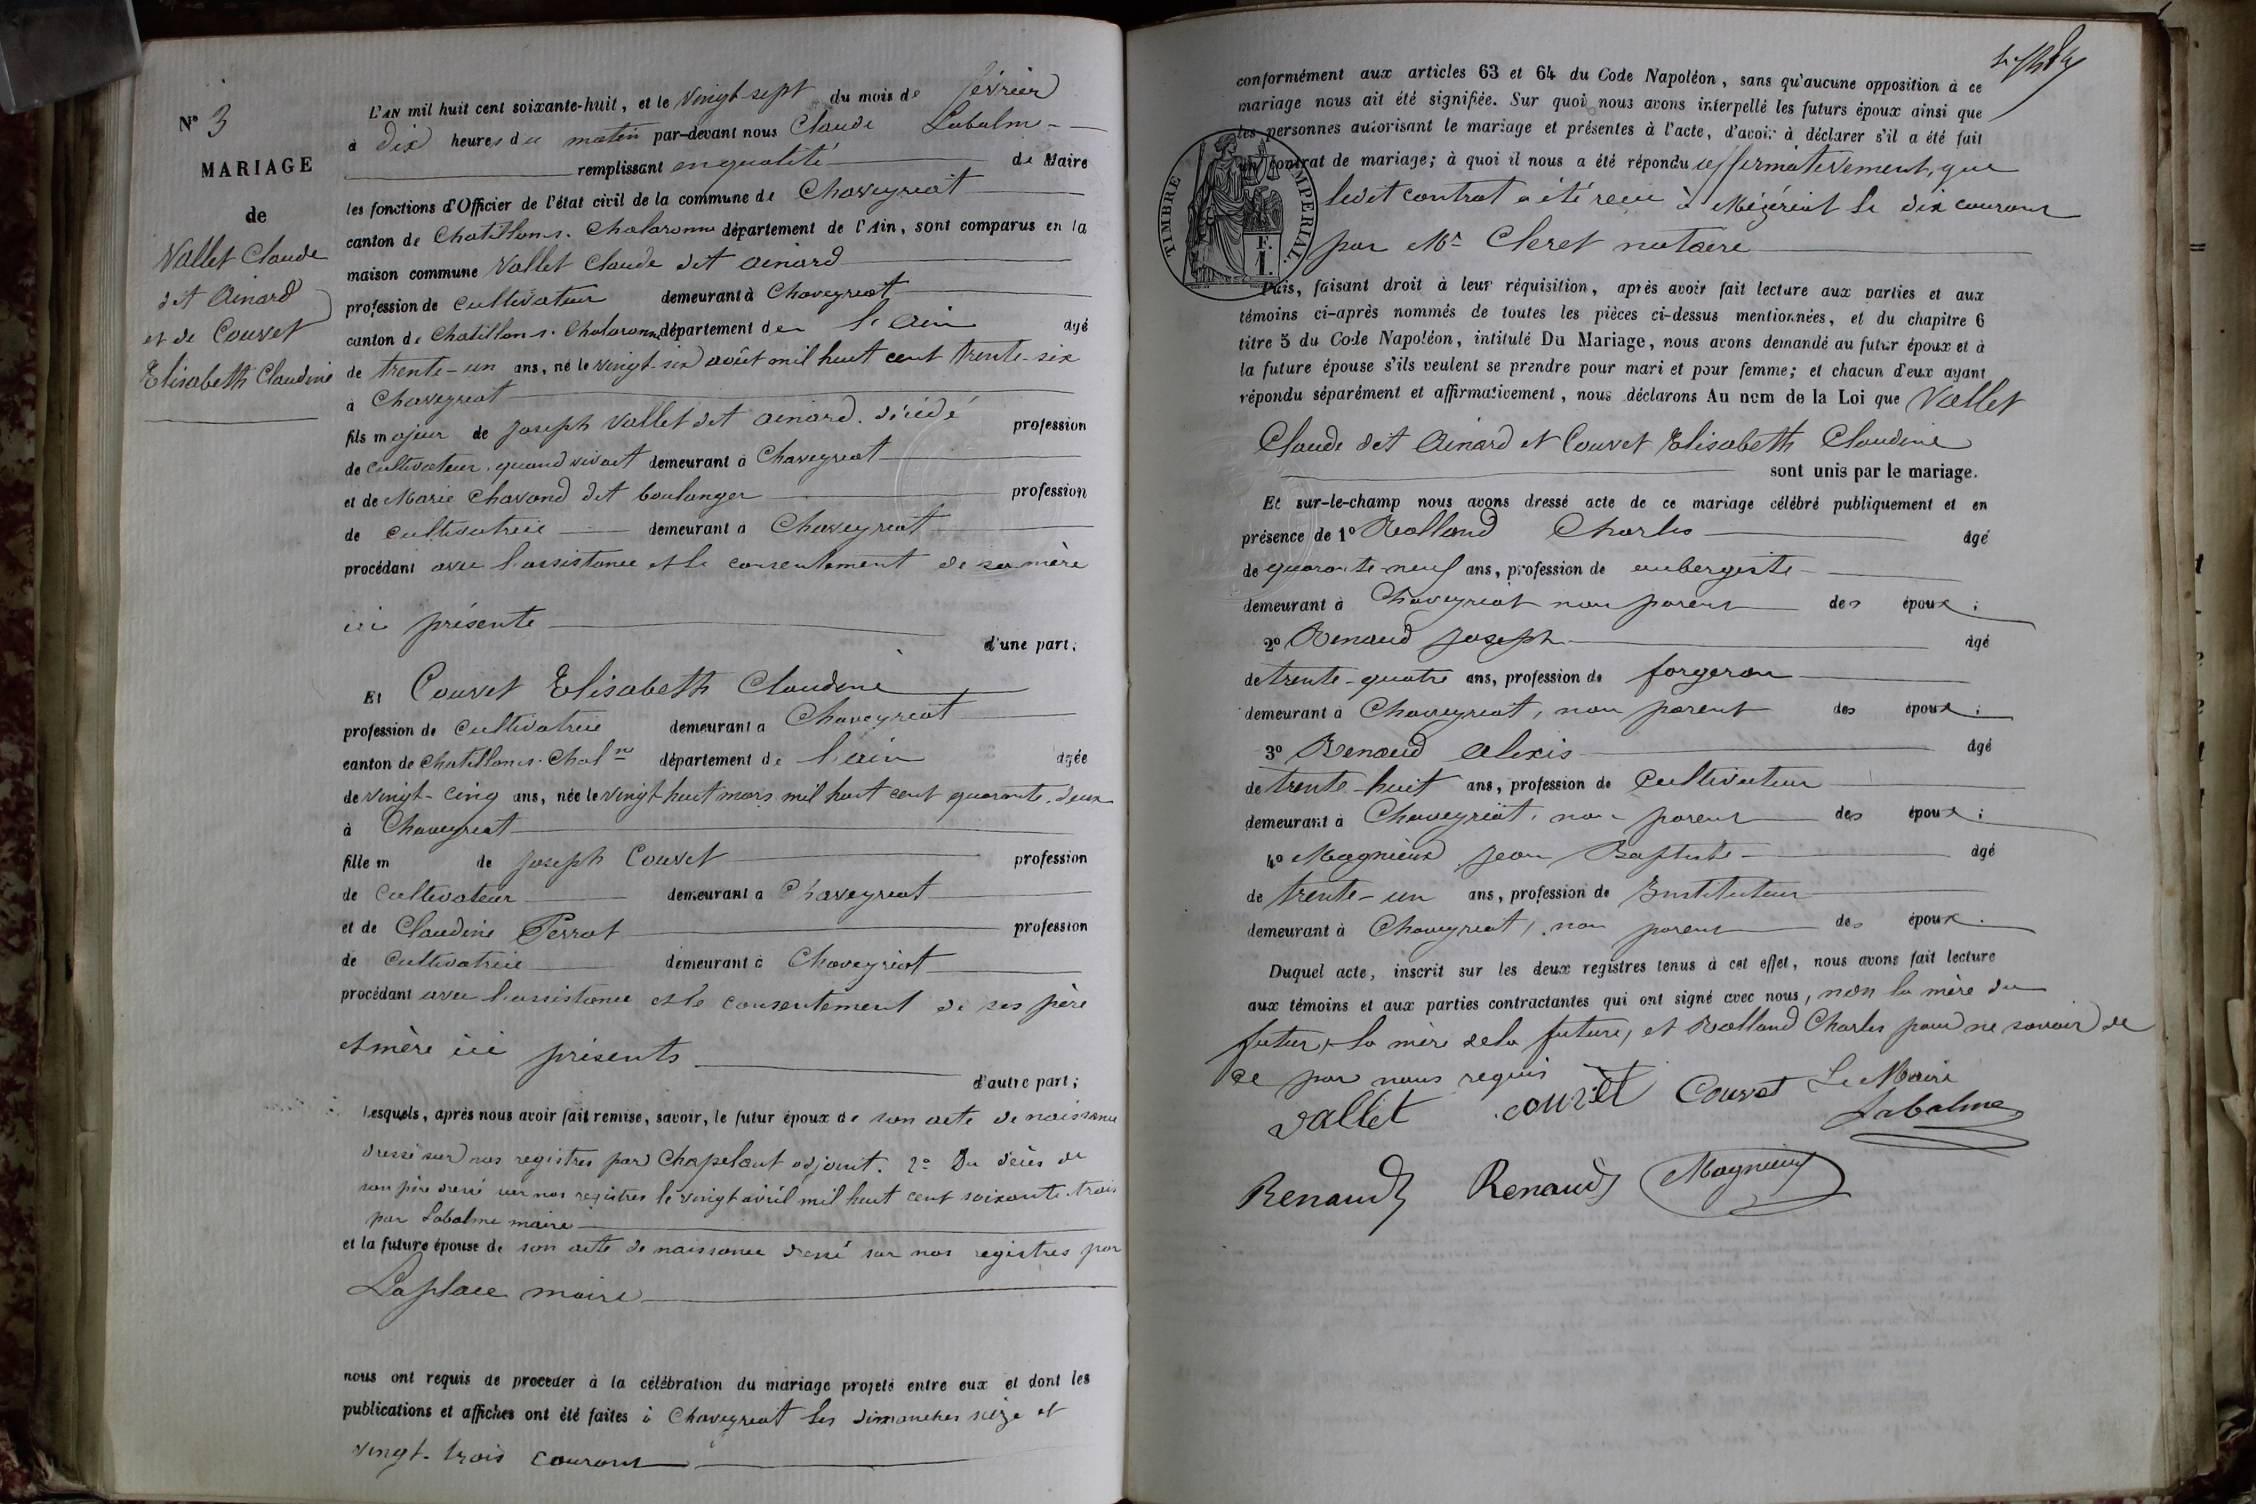 N° 3
MARIAGE
de
Vallet Claude
dit Ainard
et de Couvet
Elisabeth Claudine
L'AN mil huit cent soixante-huit, et le vingt-sept du mois de février
à dix heures du matin par-devant nous Claude Labalme
remplissant en qualité de Maire
les fonctions d'Officier de l'état civil de la commune de Chaveyriat
canton de Chatillon-s-Chalaronne département de l'Ain, sont comparus en la
maison commune Vallet Claude dit Ainard
profession de cultivateur demeurant à Chaveyriat
canton de Chatillon-s-Chalaronne département de l'Ain âgé
de trente-un ans, né le vingt-six août mil huit cent trente-six
à Chaveyriat
fils majeur de Joseph Vallet dit Ainard. décédé profession
de cultivateur, quand vivait demeurant à Chaveyriat
et de Marie Chavand dit boulanger profession
de cultivatrice demeurant à Chaveyriat
procédant avec l'assistance et le consentement de sa mère
ici présente
d'une part;
Et Couvet Elisabeth Claudine
profession de cultivatrice demeurant à Chaveyriat
canton de Chatillon-s-Chalne département de l'Ain âgée
de vingt-cinq ans, née le vingt-huit mars mil huit cent quarante-deux
à Chaveyriat
fille m de Joseph Couvet profession
de cultivateur demeurant à Chaveyriat
et de Claudine Perrat profession
de cultivatrice demeurant à Chaveyriat
procédant avec l'assistance et le consentement de ses père
et mère ici présents
d'autre part;
Lesquels, après nous avoir fait remise, savoir, le futur époux de son acte de naissance
dressé sur nos registres par Chapelant adjoint. 2° Du décès de
son père dressé sur nos registres le vingt avril mil huit cent soixante-trois
par Labalme maire
et la future épouse de son acte de naissance dressé sur nos registres par
Laplace maire
nous ont requis de procéder à la célébration du mariage projeté entre eux et dont les
publications et affiches ont été faites à Chaveyriat les dimanches seize et
vingt-trois courant
conformément aux articles 63 et 64 du Code Napoléon, sans qu'aucune opposition à ce
mariage nous ait été signifiée. Sur quoi nous avons interpellé les futurs époux ainsi que
les personnes autorisant le mariage et présentes à l'acte, d'avoir à déclarer s'il a été fait
un contrat de mariage; à quoi il nous a été répondu affirmativement, que
ledit contrat a été reçu à Mézériat le dix courant
par Mr Cleret notaire
TIMBRE IMPERIAL
F. 1.
Puis, faisant droit à leur réquisition, après avoir fait lecture aux parties et aux
témoins ci-après nommés de toutes les pièces ci-dessus mentionnées, et du chapitre 6
titre 5 du Code Napoléon, intitulé Du Mariage, nous avons demandé au futur époux et à
la future épouse s'ils veulent se prendre pour mari et pour femme; et chacun d'eux ayant
répondu séparément et affirmativement, nous déclarons Au nom de la Loi que Vallet
Claude dit Ainard et Couvet Elisabeth Claudine
sont unis par le mariage.
Et sur-le-champ nous avons dressé acte de ce mariage célébré publiquement et en
présence de 1° Rolland Charles âgé
de quarante-neuf ans, profession de aubergiste
demeurant à Chaveyriat non parent des époux;
2° Renaud Joseph âgé
de trente-quatre ans, profession de forgeron
demeurant à Chaveyriat, non parent des époux;
3° Renaud Alexis âgé
de trente-huit ans, profession de cultivateur
demeurant à Chaveyriat, non parent des époux;
4° Magnieux Jean Baptiste âgé
de trente-un ans, profession de Instituteur
demeurant à Chaveyriat, non parent des époux.
Duquel acte, inscrit sur les deux registres tenus à cet effet, nous avons fait lecture
aux témoins et aux parties contractantes qui ont signé avec nous, non la mère du
futur, la mère de la future, et Rolland Charles pour ne savoir de
ce par nous requis
Vallet couvet Couvet Le Maire
Labalme
Renaud Renaud Magnieux